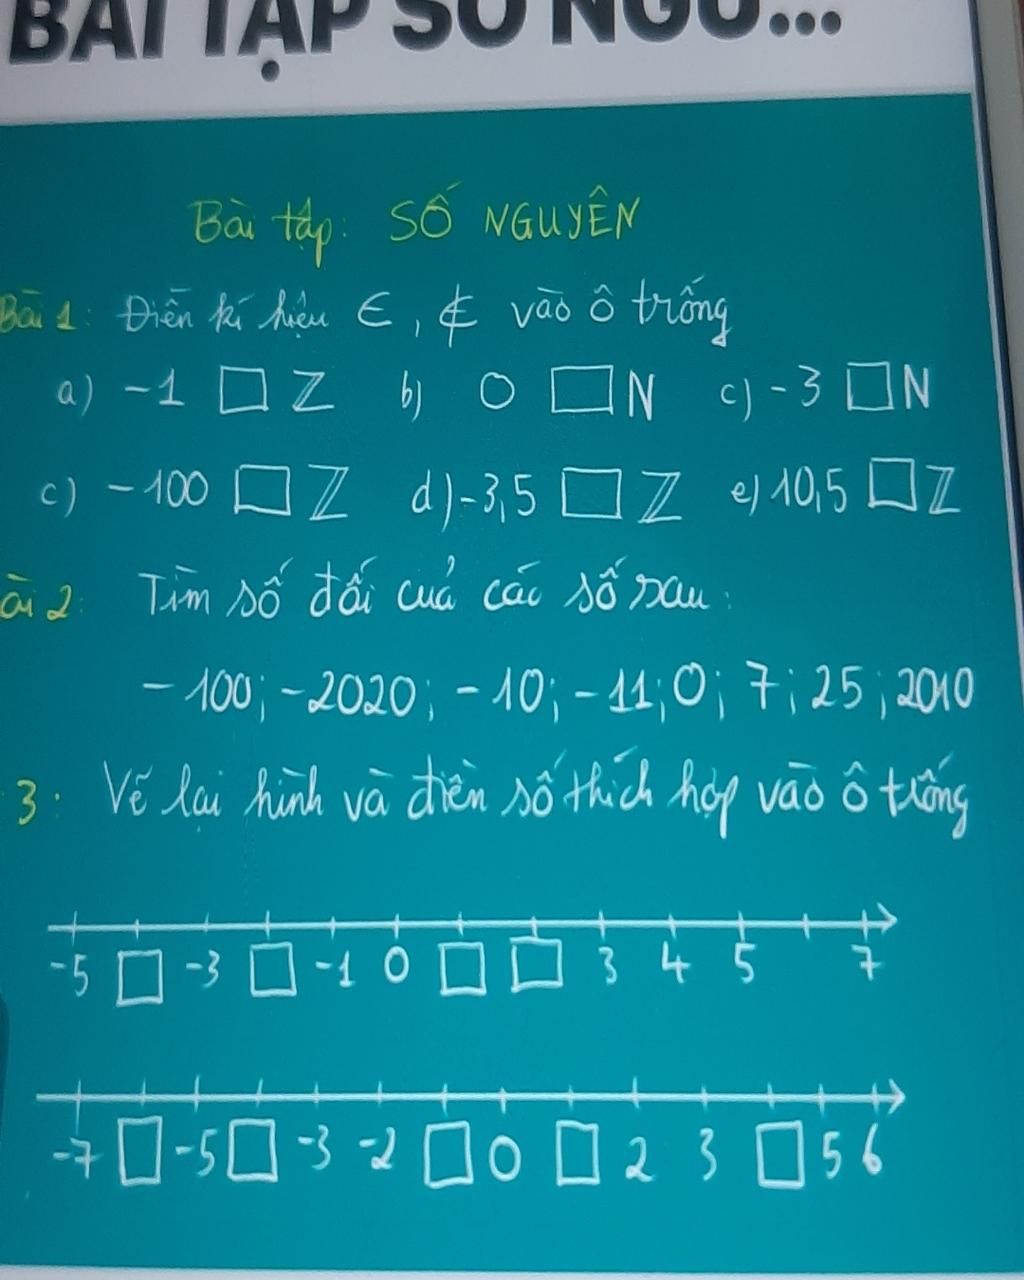 BÀI TẬP SỐ NGU...
Bài tập: SỐ NGUYÊN
Bài 1: Điền kí hiệu ∈, ∉ vào ô trống
a) -1 □ Z b) 0 □ N c) -3 □ N
c) -100 □ Z d) -3,5 □ Z e) 10,5 □ Z
ài 2: Tìm số đối của các số sau:
-100; -2020; -10; -11; 0; 7; 25; 2010
3: Vẽ lại hình và điền số thích hợp vào ô trống
-5 □ -3 □ -1 0 □ □ 3 4 5 7
-7 □ -5 □ -3 -2 □ 0 □ 2 3 □ 5 6